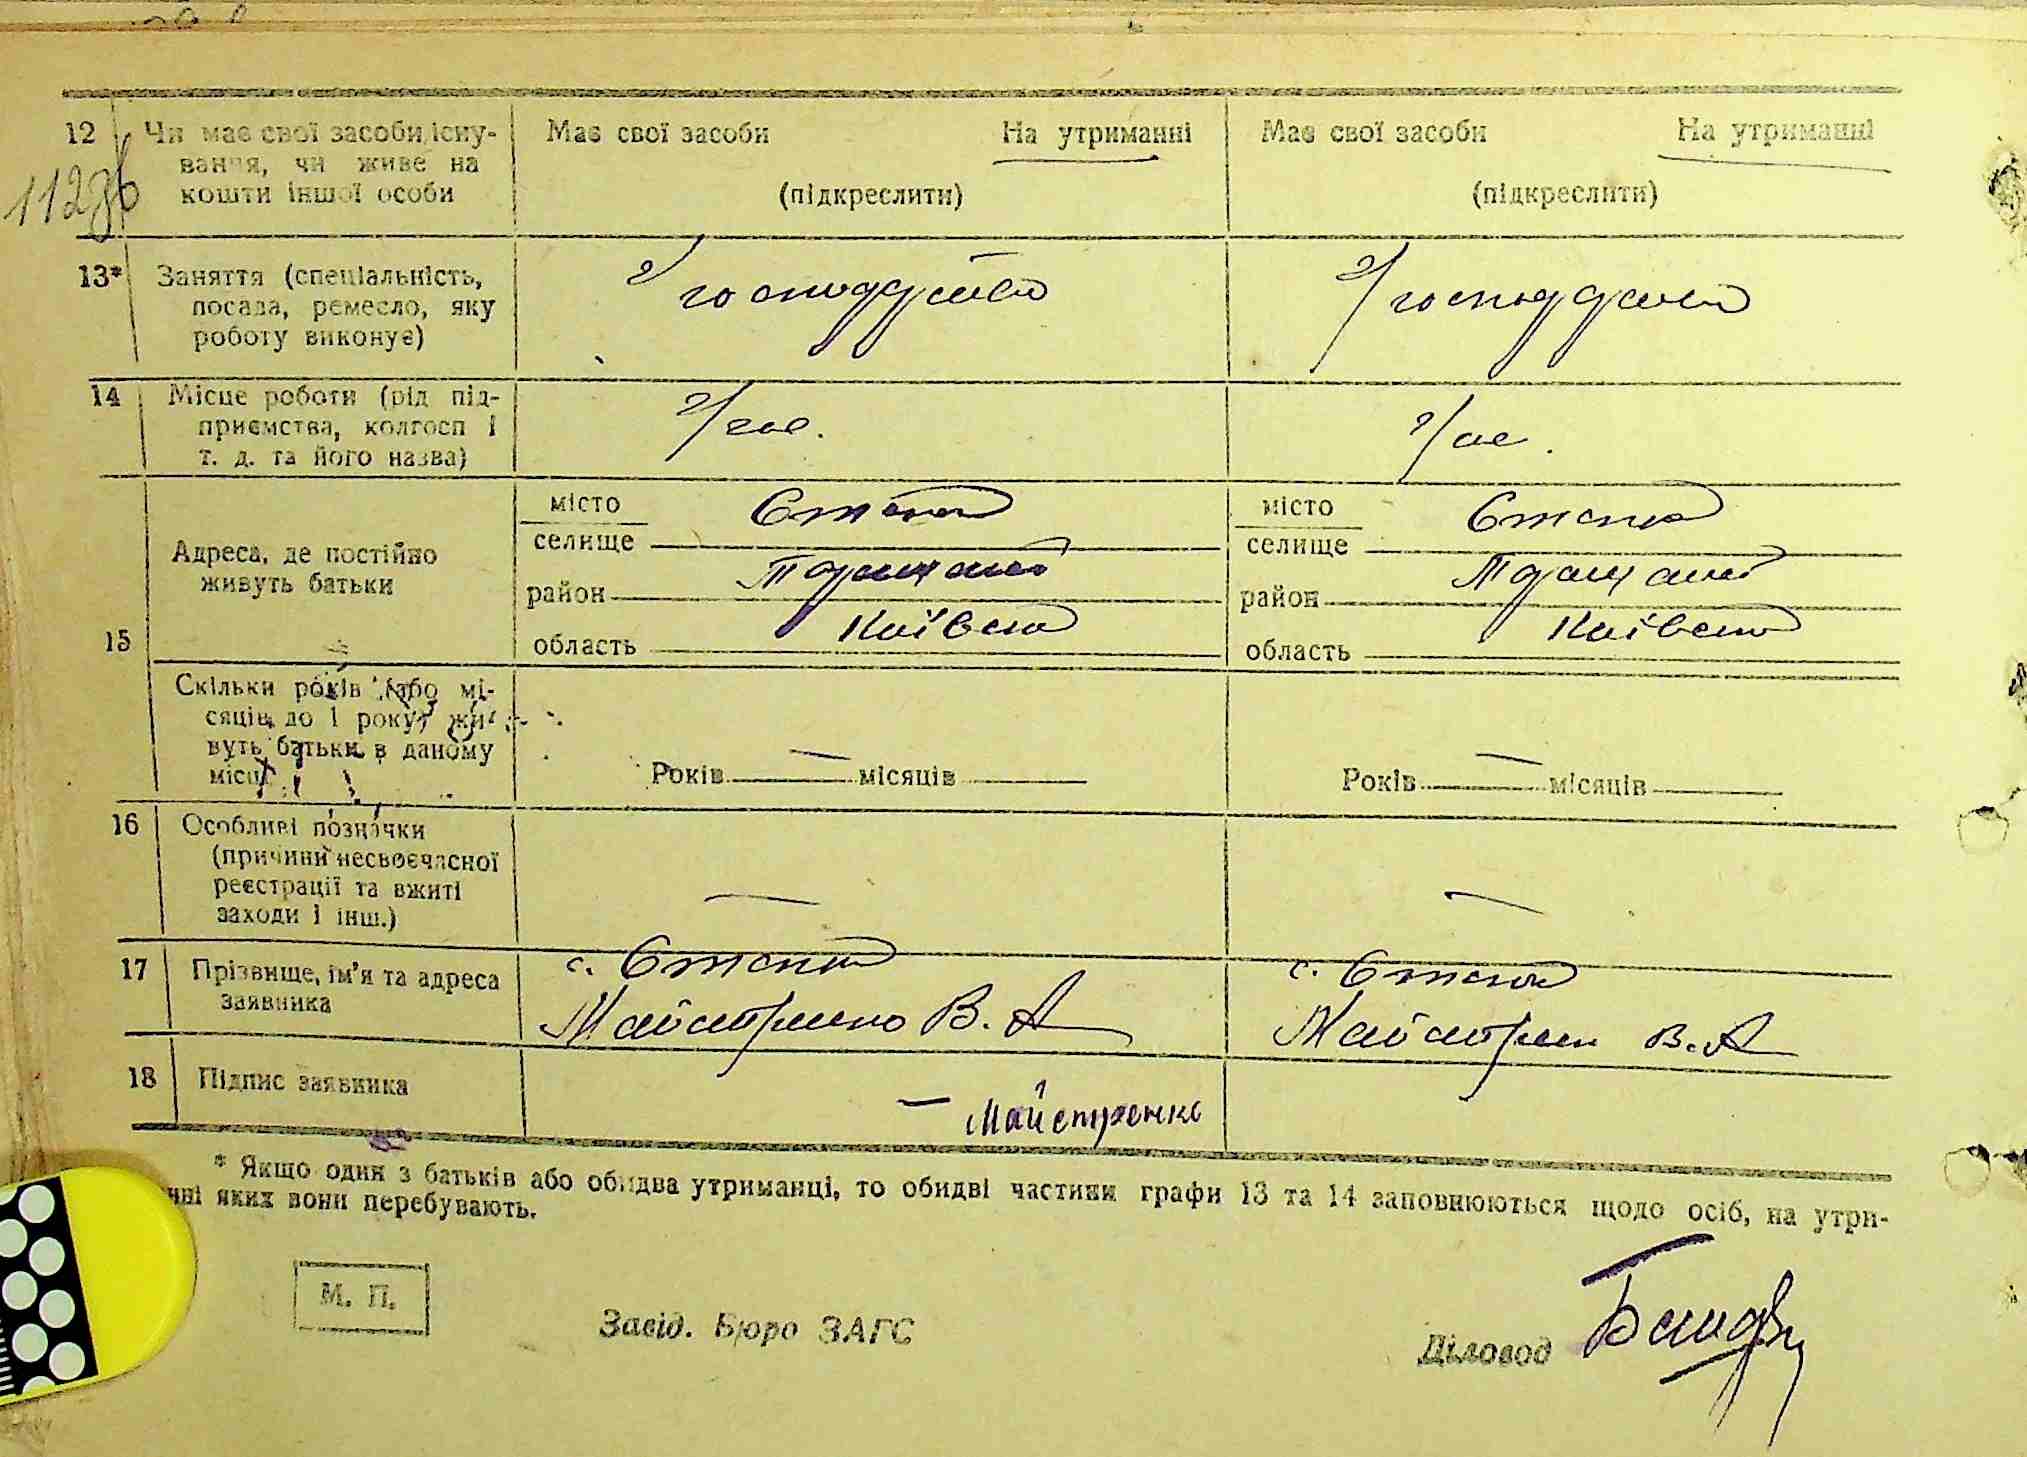 12 Чи має свої засоби існу-
вання, чи живе на
кошти іншої особи
Має свої засоби На утриманні
(підкреслити)
Має свої засоби На утриманні
(підкреслити)
112зв
13* Заняття (спеціальність,
посада, ремесло, яку
роботу виконує)
14 Місце роботи (рід під-
приємства, колгосп і
т. д. та його назва)
15 Адреса, де постійно
живуть батьки
місто
селище
район
область Київська
місто
селище
район
область Київська
Скільки років (або мі-
сяців до 1 року) жи-
вуть батьки в даному
місці
Років — місяців
Років — місяців
16 Особливі позначки
(причини несвоєчасної
реєстрації та вжиті
заходи і інш.)
—
—
17 Прізвище, ім'я та адреса
заявника
с.
Майстренко В. А
с.
Майстренко В. А
18 Підпис заявника
— Майстренко
* Якщо один з батьків або обидва утриманці, то обидві частини графи 13 та 14 заповнюються щодо осіб, на утри-
нні яких вони перебувають.
М. П.
Завід. Бюро ЗАГС
Діловод